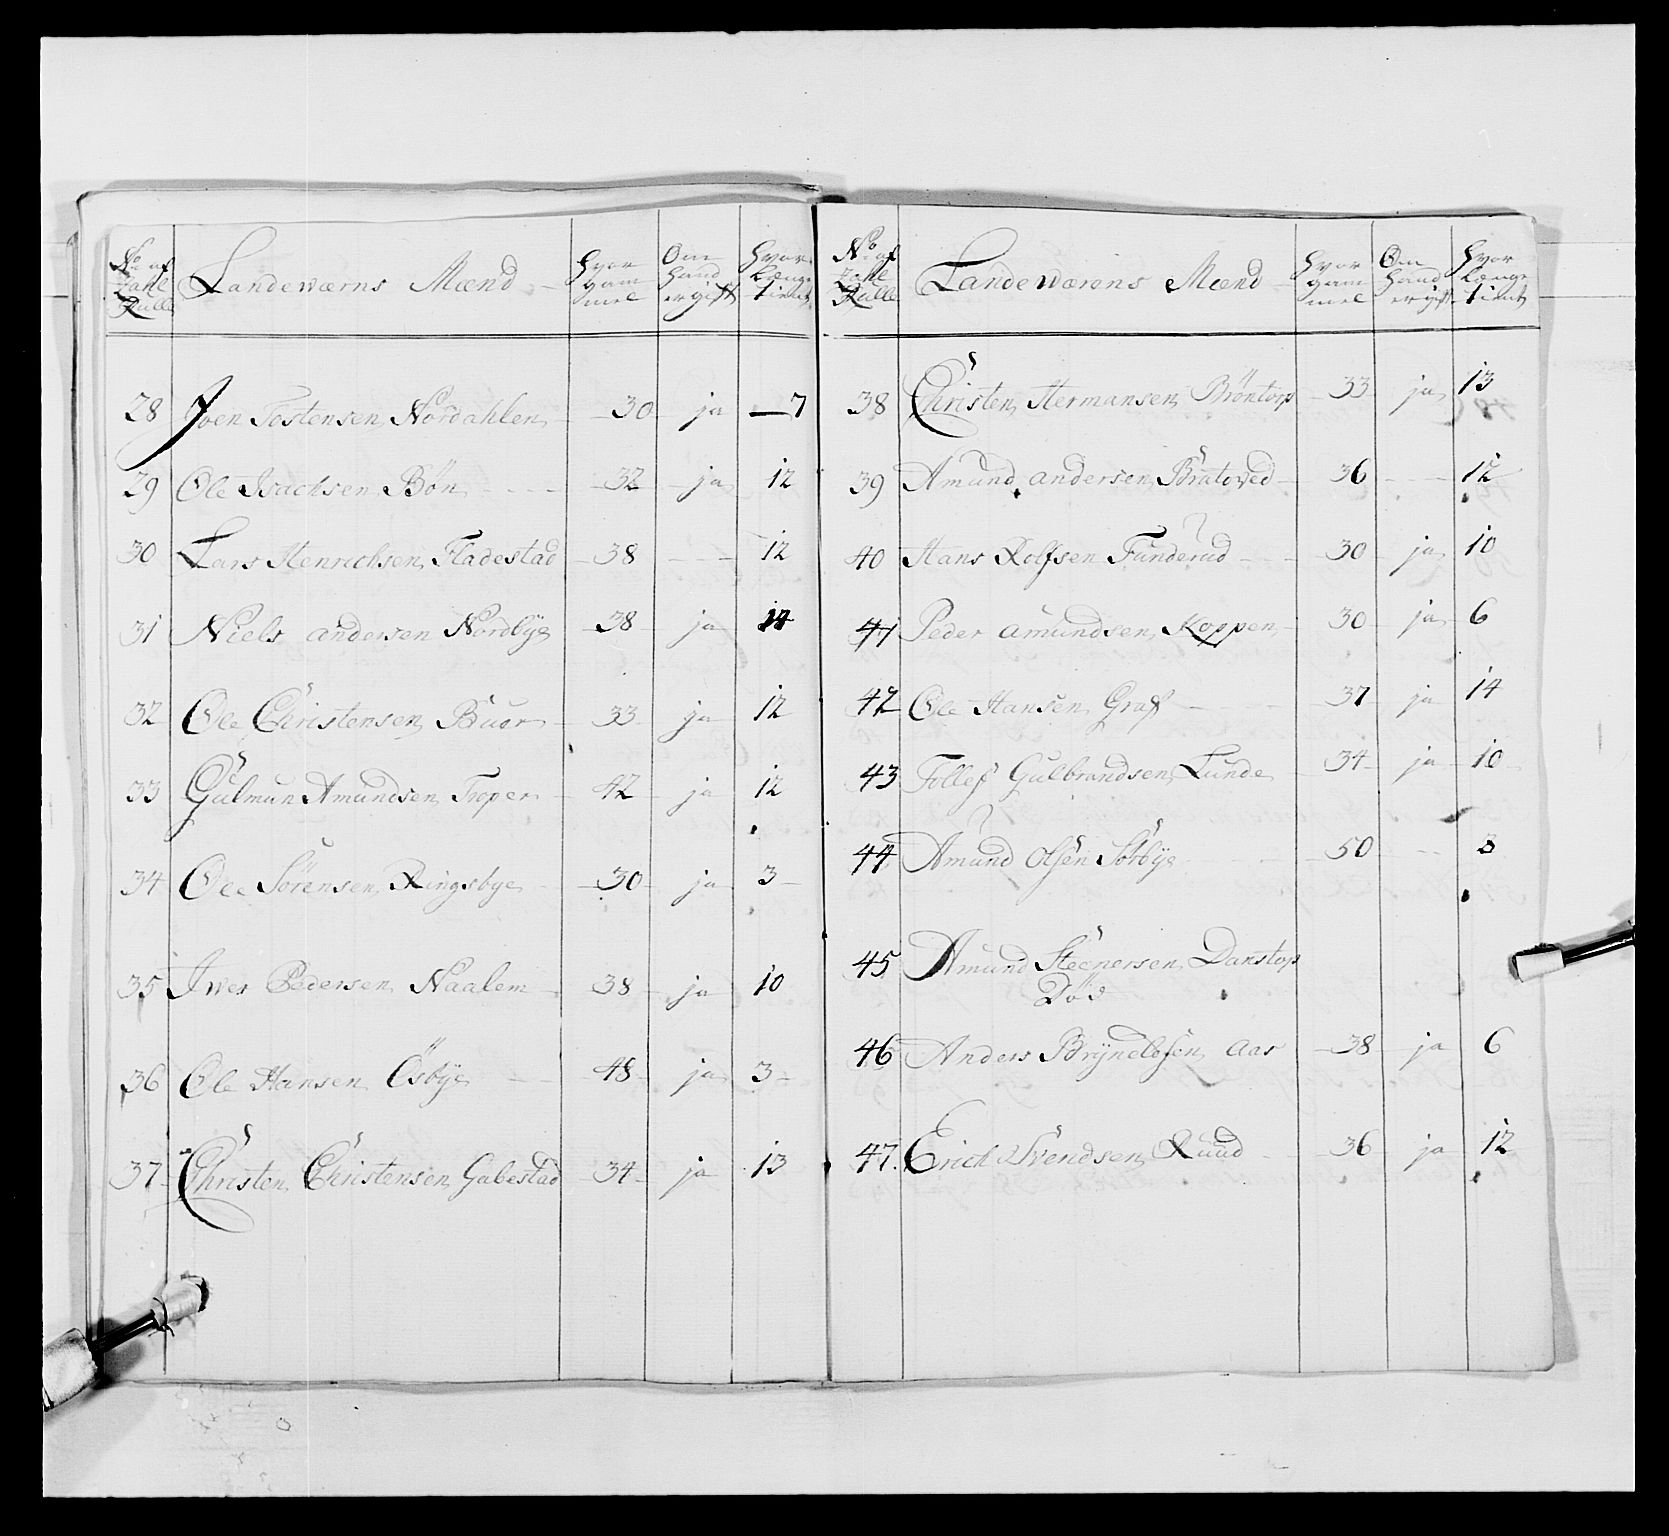 No af Zahl Rulle | Landeværns Mænd | Hvor gam mel | Om hand er gift | Hvor længe tient
28 Joen Tostensen Nordahlen 30 ja 7
29 Ole Isachsen Bön 32 ja 12
30 Lars Henrichsen Fladestad 38 - - 12
31 Niels andersen Nordbÿe 38 ja 14
32 Ole Christensen Buer 33 ja 12
33 Gulmun Amundsen Troper 42 ja 12
34 Ole Sörensen Ringsbye 30 ja 3
35 Iver Pedersen Naalem 38 ja 10
36 Ole Hansen Ösbÿe 48 ja 3
37 Christen Christensen Gabestad 34 ja 13
No af Zahl Rulle | Landeværens Mænd | Hvor gam mel | Om hand er gift | Hvor længe tient
38 Christen Hermansen Bröntorp 33 ja 13
39 Amund andersen Bratoved 36 - - 12
40 Hans Rolfsen Funderud 30 ja 10
41 Peder amundsen Koppen 30 ja 6
42 Ole Hansen Graf 37 ja 14
43 Tollef Gulbrandsen Lunde 34 ja 10
44 Amund Olsen Sörbÿe 50 - - 3
45 Amund Steenersen Danstop
Död
46 Anders Brÿnelesen aas 38 ja 6
47. Erich Svendsen Ruud 36 ja 12